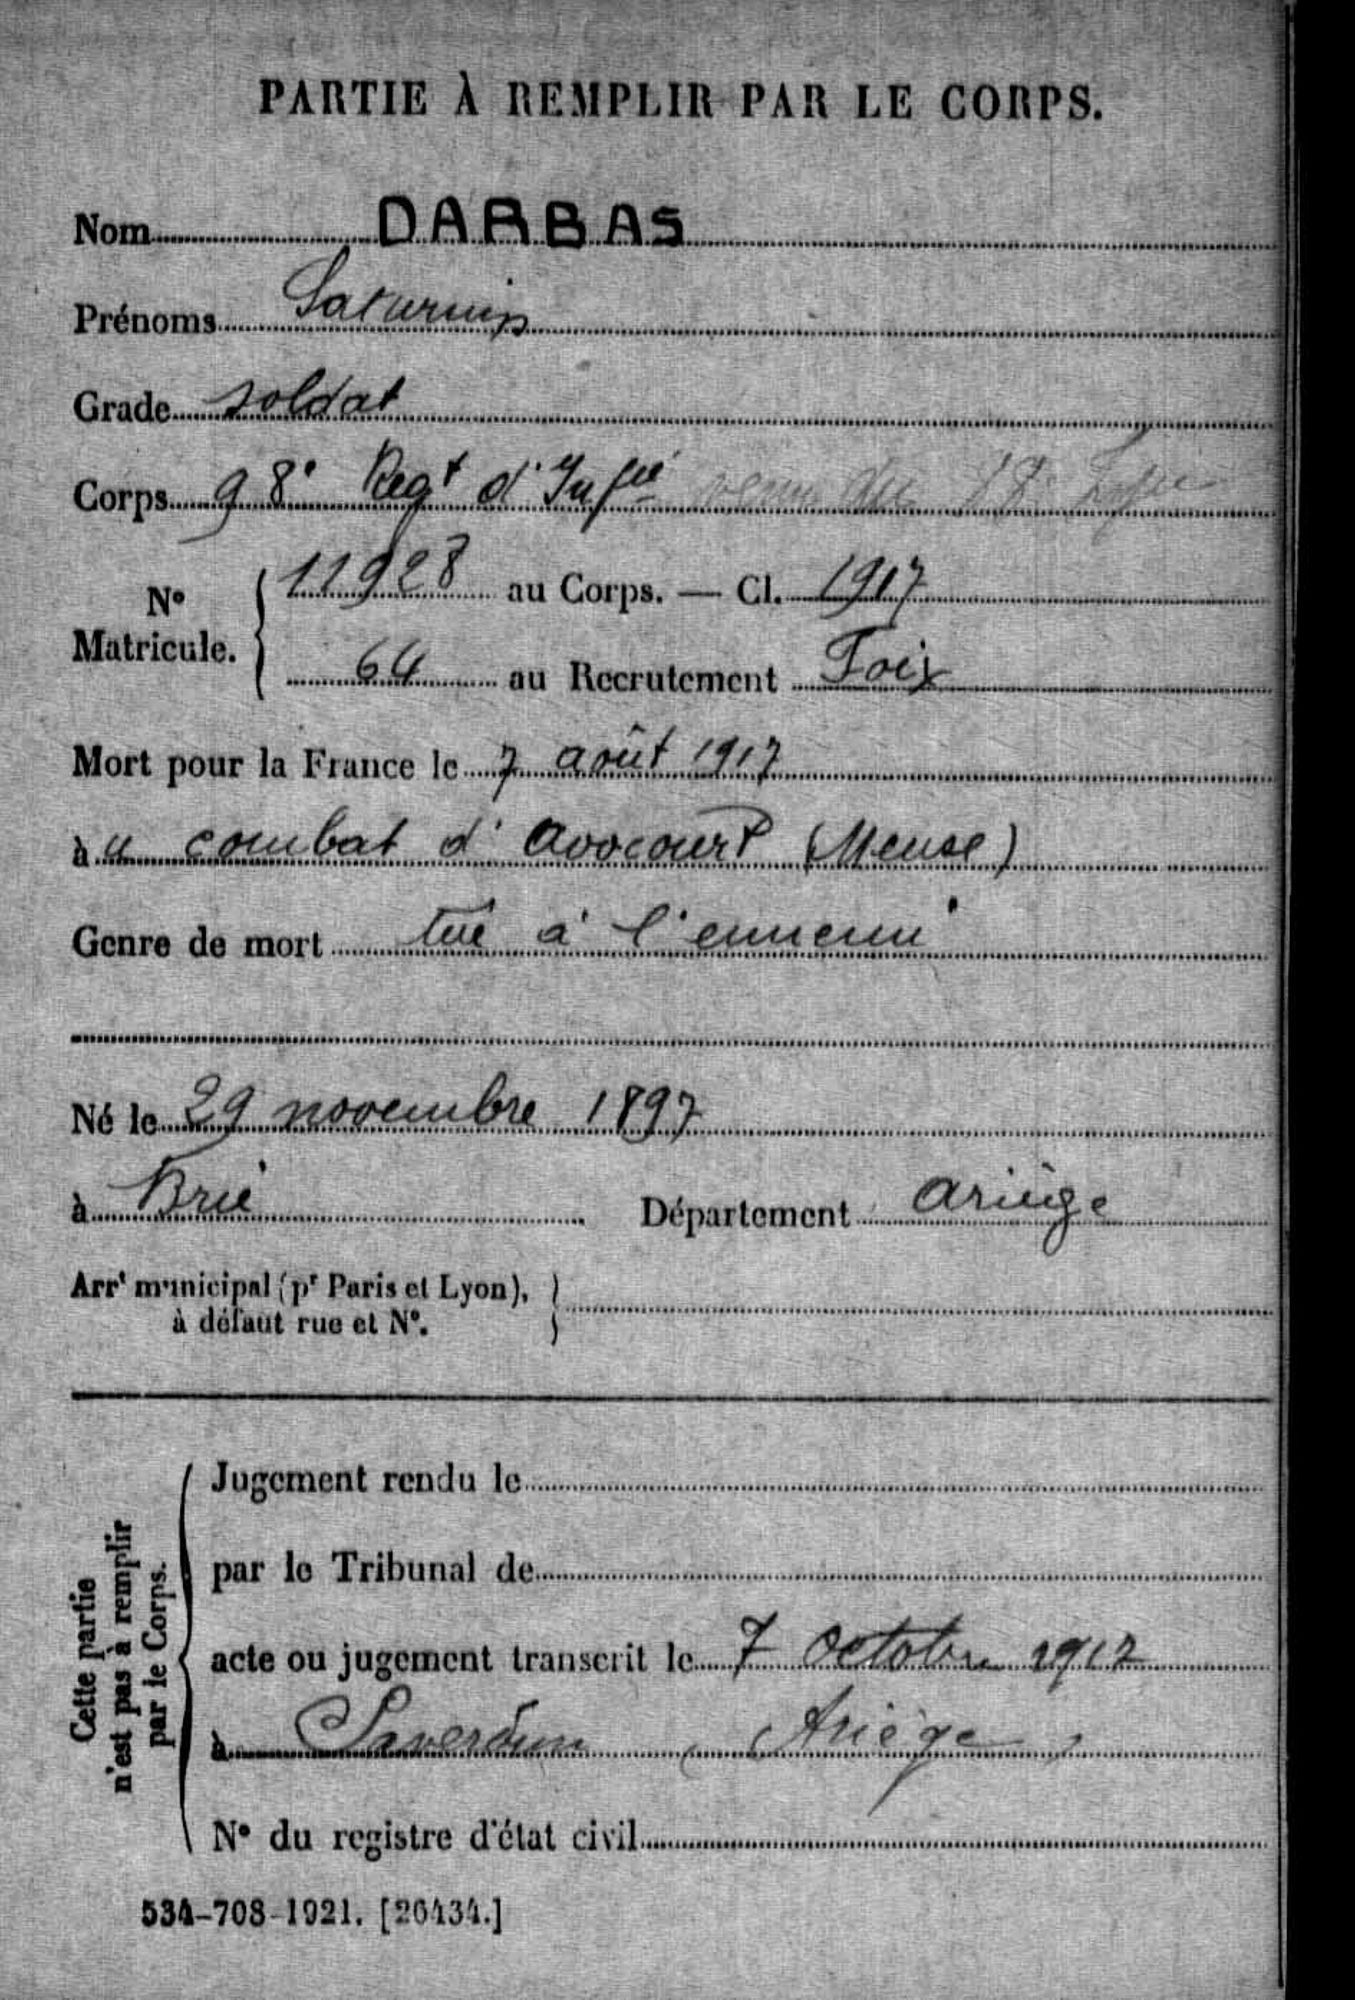 PARTIE À REMPLIR PAR LE CORPS.
Nom DARBAS
Prénoms Saturnin
Grade soldat
Corps 98e Regt d'Infie venu du
N° Matricule. 11928 au Corps. — Cl. 1917
64 au Recrutement Foix
Mort pour la France le 7 août 1917
à u combat d'Avocourt (Meuse)
Genre de mort tué à l'ennemi
Né le 29 novembre 1897
à Brie Département Ariège
Arrt municipal (pr Paris et Lyon),
à défaut rue et N°.
Cette partie
n'est pas à remplir
par le Corps.
Jugement rendu le
par le Tribunal de
acte ou jugement transcrit le 7 Octobre 1917
à Saverdun (Ariège)
N° du registre d'état civil
534-708-1921. [26434.]